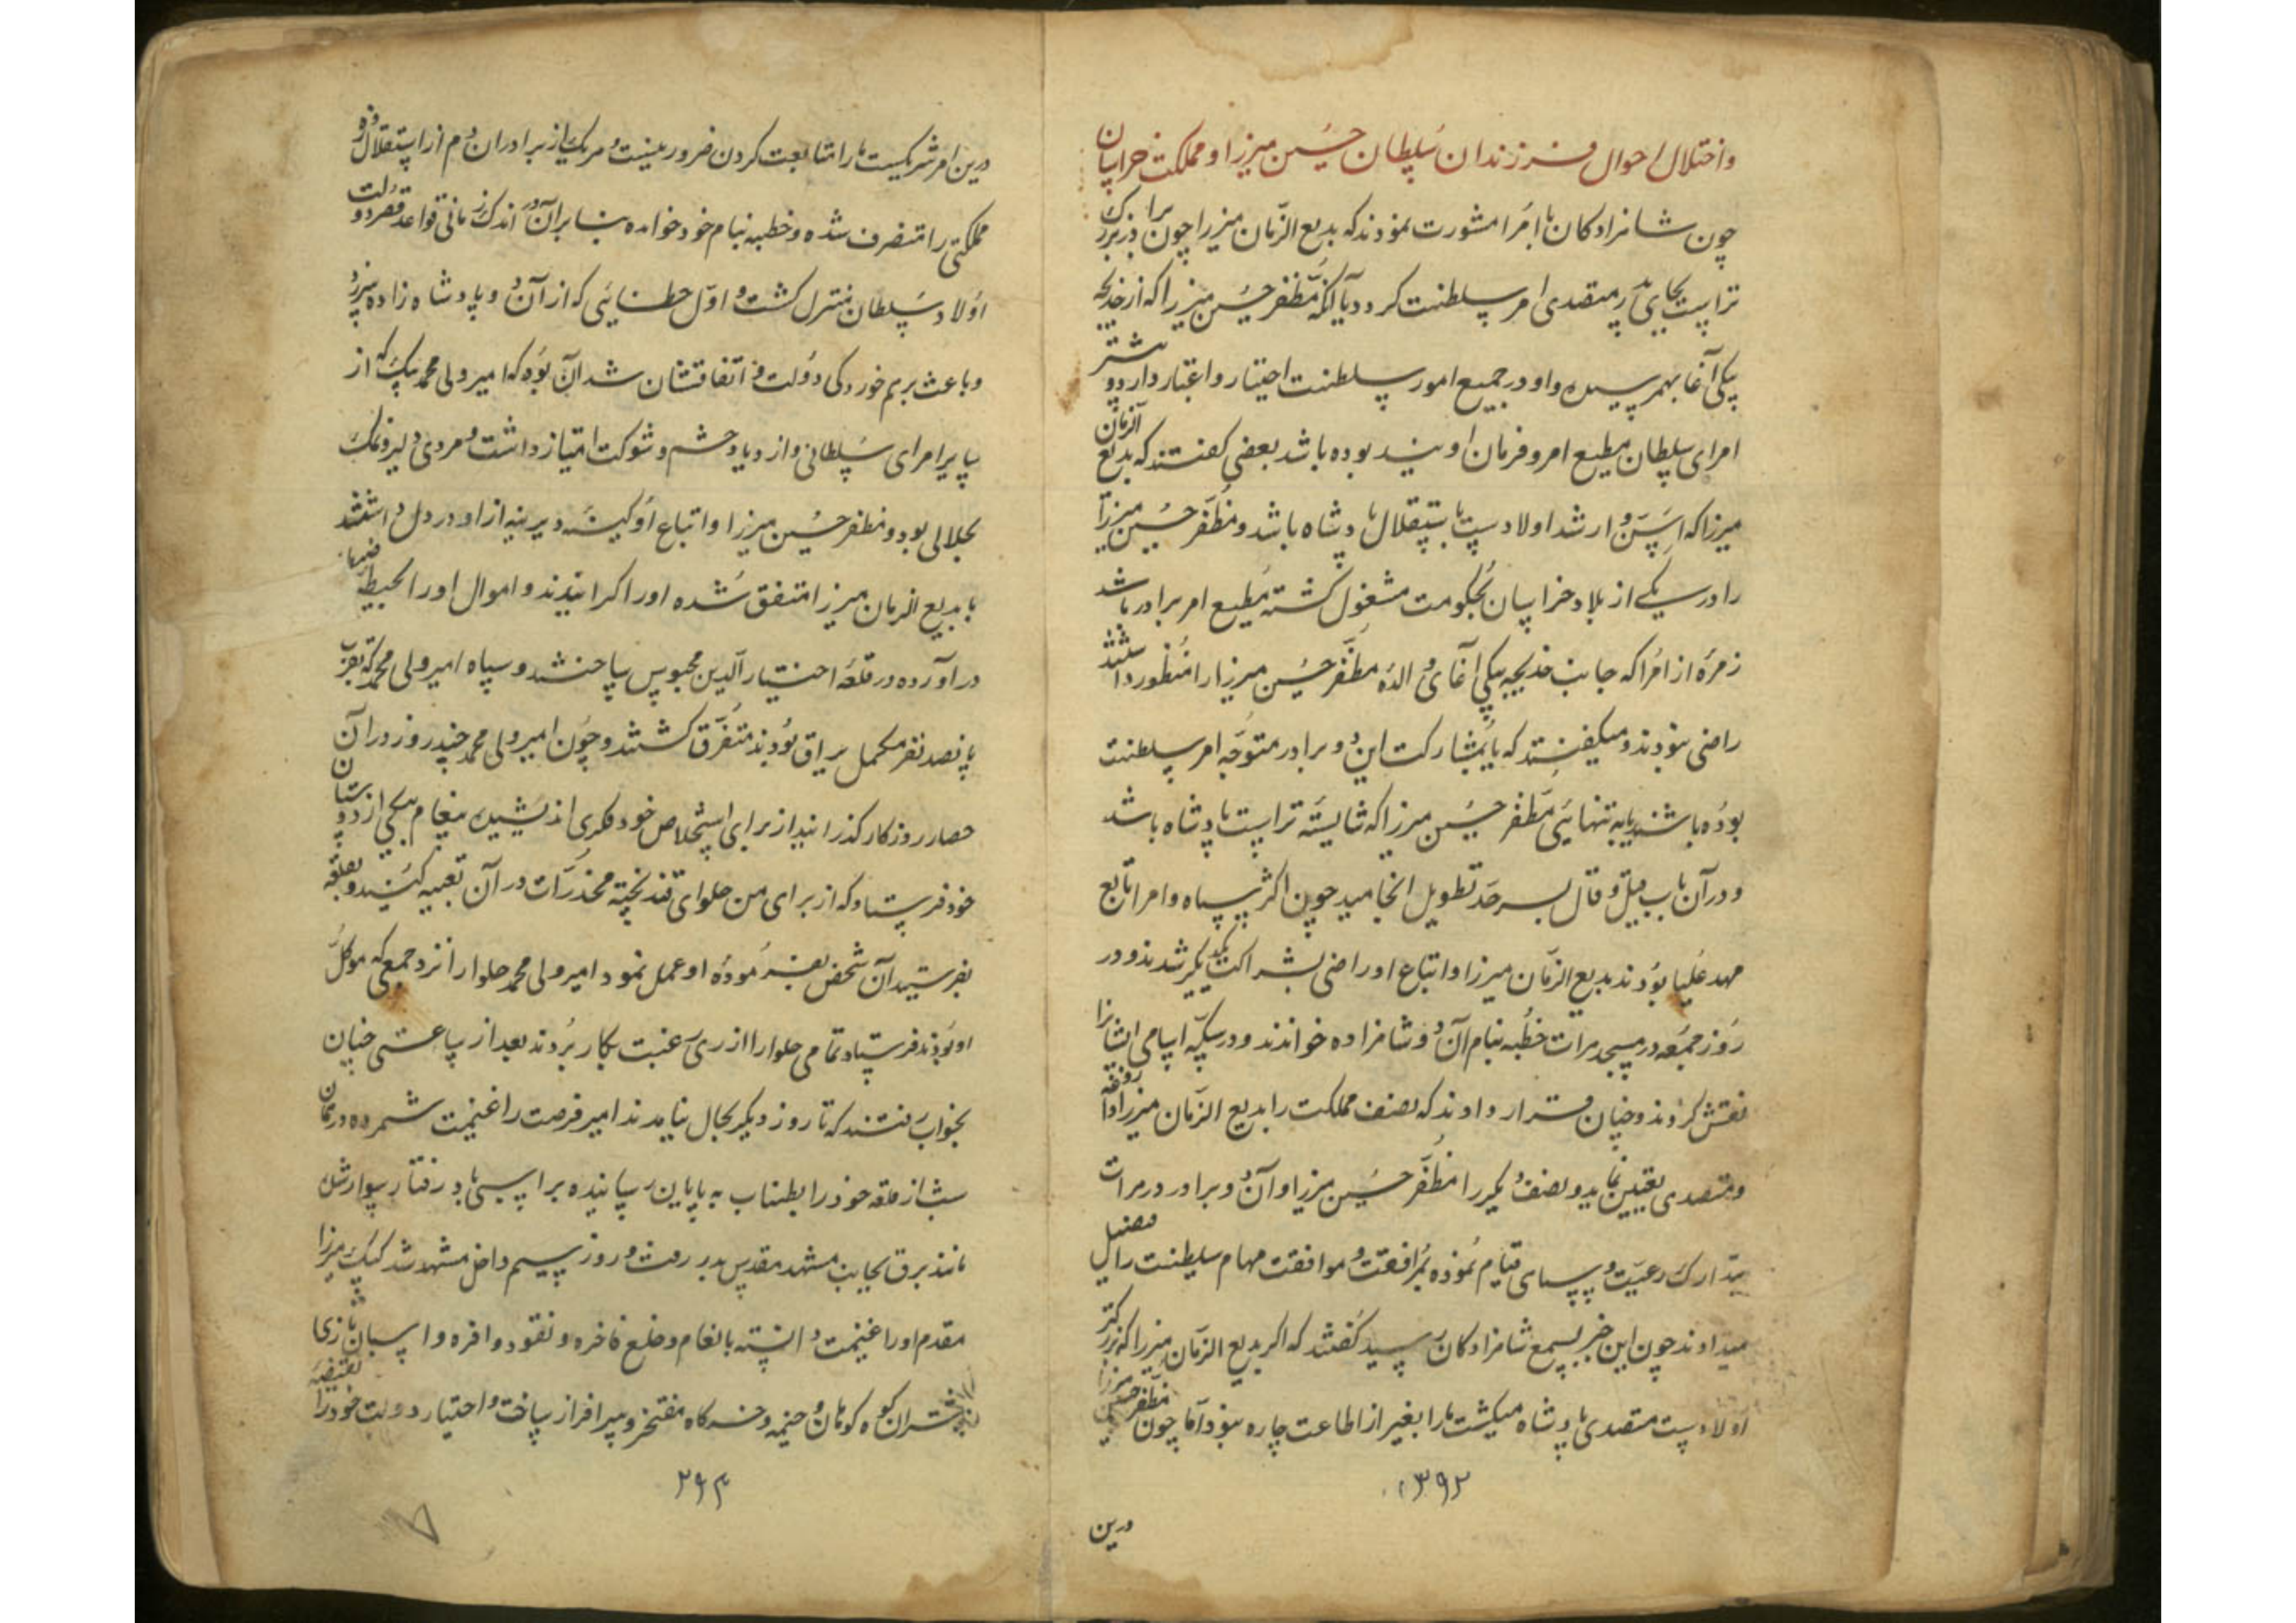 واختلال احوال فرزندان سلطان حسین میرزا و مملکت خراسان
چون شاهزادکان با امرا مشورت نمودند که بدیع الزمان میرزا چون برادر بزرک
تراست بجای پدر متصدی امر سلطنت کردد یا آنکه مظفر حسین میرزا که از خدیجه
بیکی آغا بهمرسیده و او در جمیع امور سلطنت اختیار و اعتبار دارد و بیشتر
امرای سلطان مطیع امر و فرمان اویند بوده باشد بعضی کفتند که بدیع الزمان
میرزا که اسن و ارشد اولادست باستقلال پادشاه باشد و مظفر حسین میرزا
را در یکی از بلاد خراسان بحکومت مشغول کشته مطیع امر برادر باشد
زمره از امرا که جانب خدیجه بیکی آغای والده مظفر حسین میرزا را منظور داشتند
راضی نبودند و میکفتند که یا بمشارکت این دو برادر متوجه امر سلطنت
بوده باشند یا به تنهائی مظفر حسین میرزا که شایسته تراست پادشاه باشد
و در آن باب قیل و قال بسر حد تطویل انجامید چون اکثر سپاه و امرا تابع
مهد علیا بودند بدیع الزمان میرزا و اتباع او راضی بشراکت یکدیکر شدند و در
روز جمعه در مسجد هرات خطبه بنام آن دو شاهزاده خواندند و در سکه اسامی ایشانرا
نقش کردند و چنان قرار دادند که نصف مملکت را بدیع الزمان میرزا داروغه
و متصدی تعیین نماید و نصف دیکر را مظفر حسین میرزا و آن دو برادر در هرات
بتدارک رعیت و سپاهی قیام نموده بمرافقت و موافقت مهام سلطنت را فیصل
میدادند چون این خبر بسمع شاهزادکان رسید کفتند که اکر بدیع الزمان میرزا که بزرکتر
اولادست متصدی پادشاه میکشت ما را بغیر از اطاعت چاره نبود اما چون مظفر حسین میرزا
۳۹۲
درین
درین امر شریکست ما را متابعت کردن ضرور نیست و هر یک از برادران دم از استقلال زده
مملکتی را متصرف شده و خطبه بنام خود خوانده بنابرآن در اندک زمانی قواعد قصر دولت
اولاد سلطان متزلزل کشت و اول خطائی که از آن دو پادشاه زاده سرزد
و باعث برهم خوردکی دولت و اتفاقشان شد آن بود که امیر ولی محمد بیک که از
سایر امرای سلطانی و ازدیاد حشم و شوکت امتیاز داشت و مردی دلیر و نمک
بحلالی بود و مظفر حسین میرزا و اتباع او کینه دیرینه از او در دل داشتند
با بدیع الزمان میرزا متفق شده او را کرانیدند و اموال او را بحیطه
در آورده در قلعه اختیار الدین محبوس ساختند و سپاه امیر ولی محمد که بقرب
پانصد نفر مکمل یراق بودند متفرق کشتند و چون امیر ولی محمد چند روز در آن
حصار روزکار کذرانید از برای استخلاص خود فکری اندیشیده پیغام بیکی از دوستان
خود فرستاد که از برای من حلوای قند پخته مخدرات در آن تعبیه کنید و بقلعه
بفرستید آن شخص بفرموده او عمل نمود امیر ولی محمد حلوا را نزد جمعی که موکل
او بودند فرستاد تمامی حلوا را از روی رغبت بکار بردند بعد از ساعتی چنان
بخواب رفتند که تا روز دیکر بحال نیامدند امیر فرصت را غنیمت شمرده در همان
شب از قلعه خود را بطناب به پایان رسانیده بر اسبی باد رفتار سوار شده
مانند برق بجانب مشهد مقدس بدر رفت و روز سیم داخل مشهد شد کپک میرزا
مقدم او را غنیمت دانسته بانعام و خلع فاخره و نقود وافره و اسبان تازی
و شتران کوه کوهان و خیمه و خرکاه مفتخر و سرافراز ساخت و اختیار دولت خود را
۲۹۳